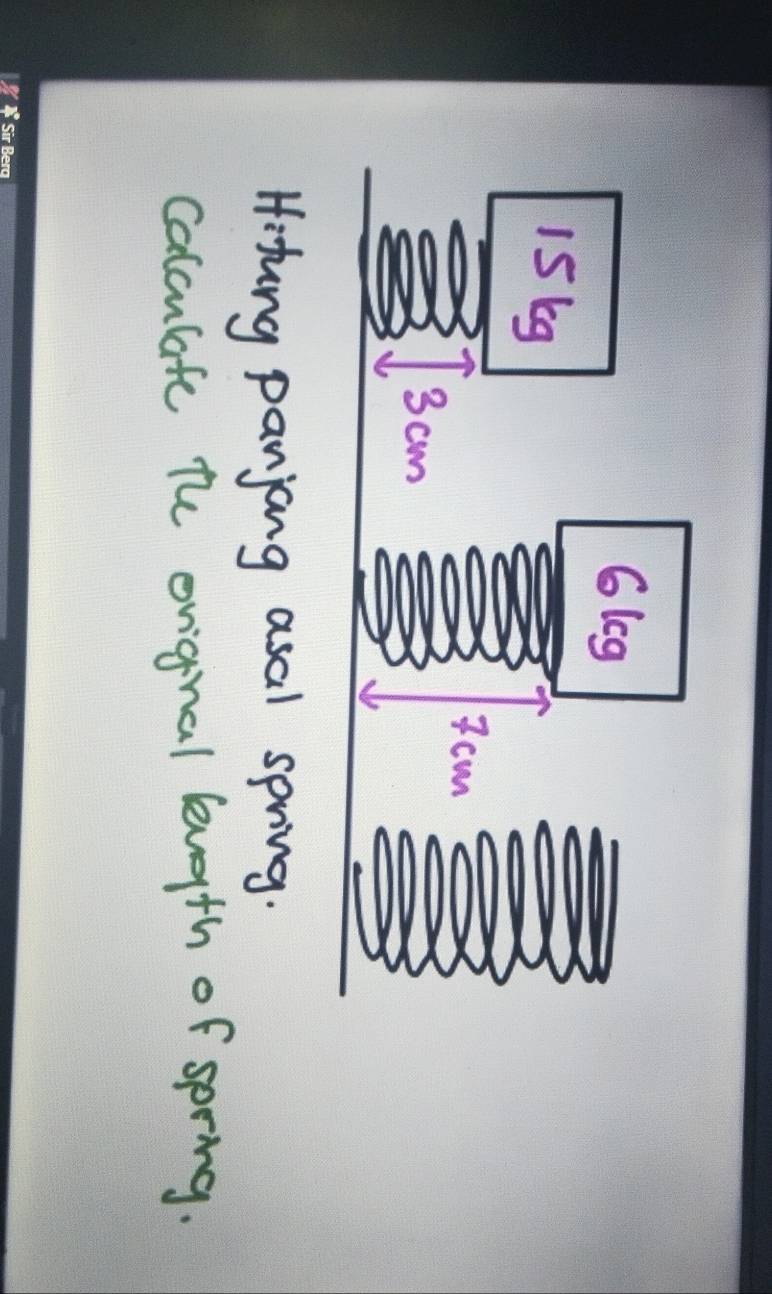 15 kg
6 kg
3 cm
7 cm
Hitung panjang asal spring.
Calculate the original length of spring.
Sir Berg